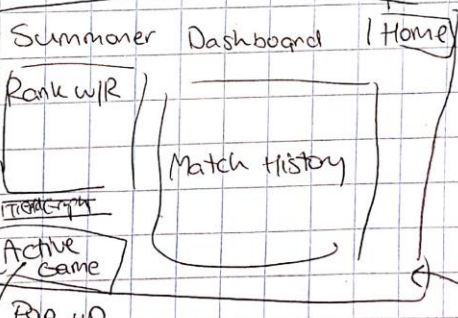 Summoner Dashboard Home
Rank W/R
Match History
Active
Game
Pop up